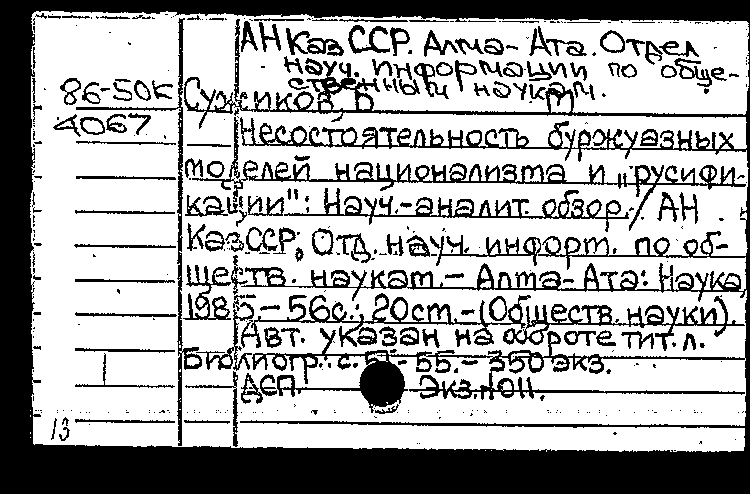 АН Каз ССР. Алма-Ата. Отдел
науч. информации по обще-
ственным наукам.
86-50К
Сужиков, Б М
4067
Несостоятельность буржуазных
моделей национализма и „русифи-
кации": Науч.-аналит. обзор. / АН
КазССР, Отд. науч. информ. по об-
ществ. наукам. - Алма-Ата: Наука,
1985. - 56с.; 20см. - (Обществ. науки).
Авт. указан на обороте тит. л.
Библиогр.: с. 51-55. - 350 экз.
ДСП. Экз.№011.
13